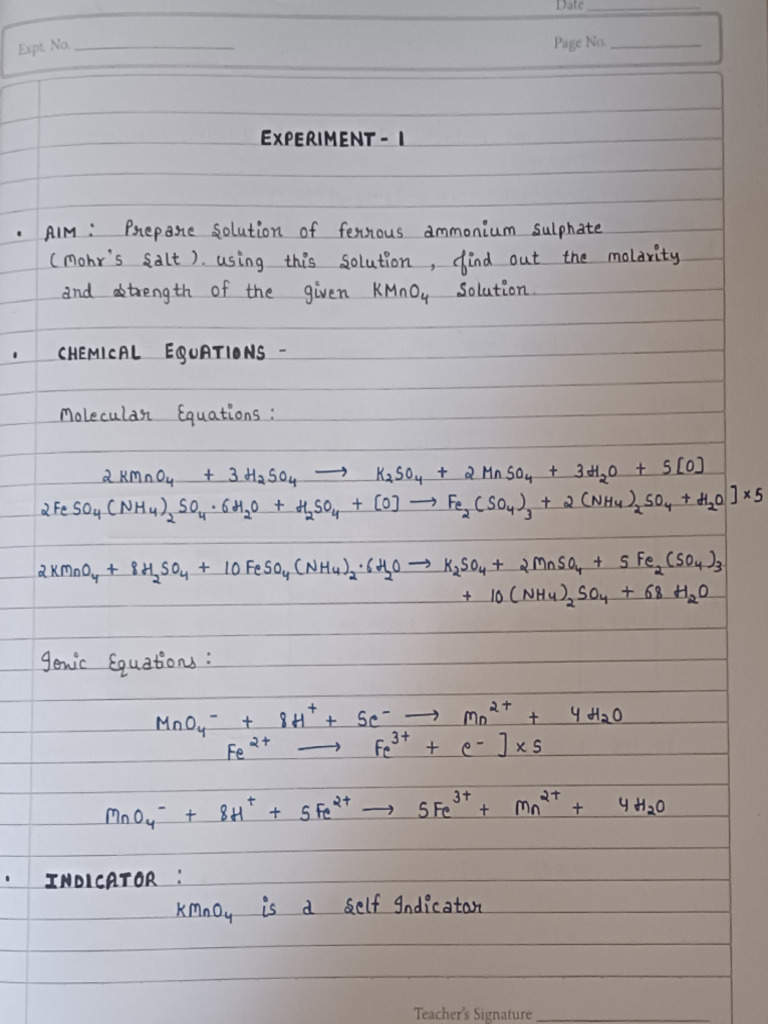 Date
Expt. No.
Page No.
EXPERIMENT - 1
• AIM : Prepare solution of ferrous ammonium sulphate
(Mohr's salt). using this solution, find out the molarity
and strength of the given KMnO₄ solution.
• CHEMICAL EQUATIONS -
Molecular Equations :
2 KMnO₄ + 3 H₂SO₄ → K₂SO₄ + 2 MnSO₄ + 3H₂O + 5[O]
2FeSO₄(NH₄)₂SO₄·6H₂O + H₂SO₄ + [O] → Fe₂(SO₄)₃ + 2(NH₄)₂SO₄ + H₂O ] × 5
2KMnO₄ + 8H₂SO₄ + 10FeSO₄(NH₄)₂·6H₂O → K₂SO₄ + 2MnSO₄ + 5Fe₂(SO₄)₃
+ 10(NH₄)₂SO₄ + 68 H₂O
Ionic Equations :
MnO₄⁻ + 8H⁺ + 5e⁻ → Mn²⁺ + 4H₂O
Fe²⁺ → Fe³⁺ + e⁻ ] × 5
MnO₄⁻ + 8H⁺ + 5Fe²⁺ → 5Fe³⁺ + Mn²⁺ + 4H₂O
• INDICATOR :
KMnO₄ is a self Indicator
Teacher's Signature